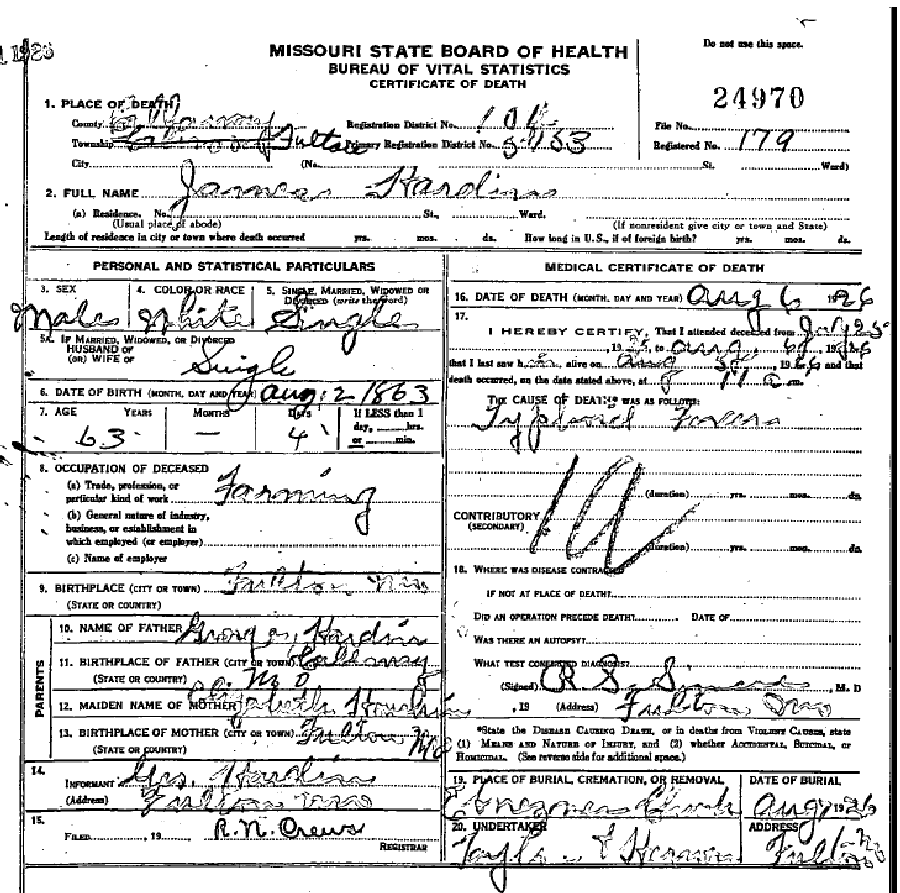 1926
MISSOURI STATE BOARD OF HEALTH
BUREAU OF VITAL STATISTICS
CERTIFICATE OF DEATH
Do not use this space.
24970
1. PLACE OF DEATH
County Registration District No. 104
File No.
Township Fulton Primary Registration District No. 5453
Registered No. 179
City (No. St. Ward)
2. FULL NAME James Hardin
(a) Residence. No. St. Ward.
(Usual place of abode) (If nonresident give city or town and State)
Length of residence in city or town where death occurred yrs. mos. ds. How long in U.S., if of foreign birth? yrs. mos. ds.
PERSONAL AND STATISTICAL PARTICULARS
3. SEX 4. COLOR OR RACE 5. SINGLE, MARRIED, WIDOWED OR
DIVORCED (write the word)
Male White Single
5A. IF MARRIED, WIDOWED, OR DIVORCED
HUSBAND OF
(OR) WIFE OF
Single
6. DATE OF BIRTH (MONTH, DAY AND YEAR) Aug 2 1863
7. AGE YEARS MONTHS DAYS If LESS than 1
day, hrs.
or min.
63 — 4
8. OCCUPATION OF DECEASED
(a) Trade, profession, or
particular kind of work Farming
(b) General nature of industry,
business, or establishment in
which employed (or employer)
(c) Name of employer
9. BIRTHPLACE (CITY OR TOWN) Fulton Mo
(STATE OR COUNTRY)
PARENTS
10. NAME OF FATHER George Hardin
11. BIRTHPLACE OF FATHER (CITY OR TOWN) Callaway
(STATE OR COUNTRY) Mo
12. MAIDEN NAME OF MOTHER Elizabeth
13. BIRTHPLACE OF MOTHER (CITY OR TOWN) Fulton Mo
(STATE OR COUNTRY)
14.
INFORMANT Hardin
(Address) Fulton Mo
15.
FILED , 19 R.N. Crews
REGISTRAR
MEDICAL CERTIFICATE OF DEATH
16. DATE OF DEATH (MONTH, DAY AND YEAR) Aug 6 1926
17.
I HEREBY CERTIFY, That I attended deceased from July 25
, 19 , to Aug 6, 1926
that I last saw h alive on Aug 5, 1926 and that
death occurred, on the date stated above, at 11 m.
THE CAUSE OF DEATH* WAS AS FOLLOWS:
Typhoid Fever
1A
(duration) yrs. mos. ds.
CONTRIBUTORY
(SECONDARY)
(duration) yrs. mos. ds.
18. WHERE WAS DISEASE CONTRACTED
IF NOT AT PLACE OF DEATH?
DID AN OPERATION PRECEDE DEATH? DATE OF
WAS THERE AN AUTOPSY?
WHAT TEST CONFIRMED DIAGNOSIS?
(Signed) R. S. , M. D
, 19 (Address) Fulton Mo
*State the DISEASE CAUSING DEATH, or in deaths from VIOLENT CAUSES, state
(1) MEANS AND NATURE OF INJURY, and (2) whether ACCIDENTAL, SUICIDAL, or
HOMICIDAL. (See reverse side for additional space.)
19. PLACE OF BURIAL, CREMATION, OR REMOVAL DATE OF BURIAL
Aug 1926
20. UNDERTAKER ADDRESS
Fulton Mo